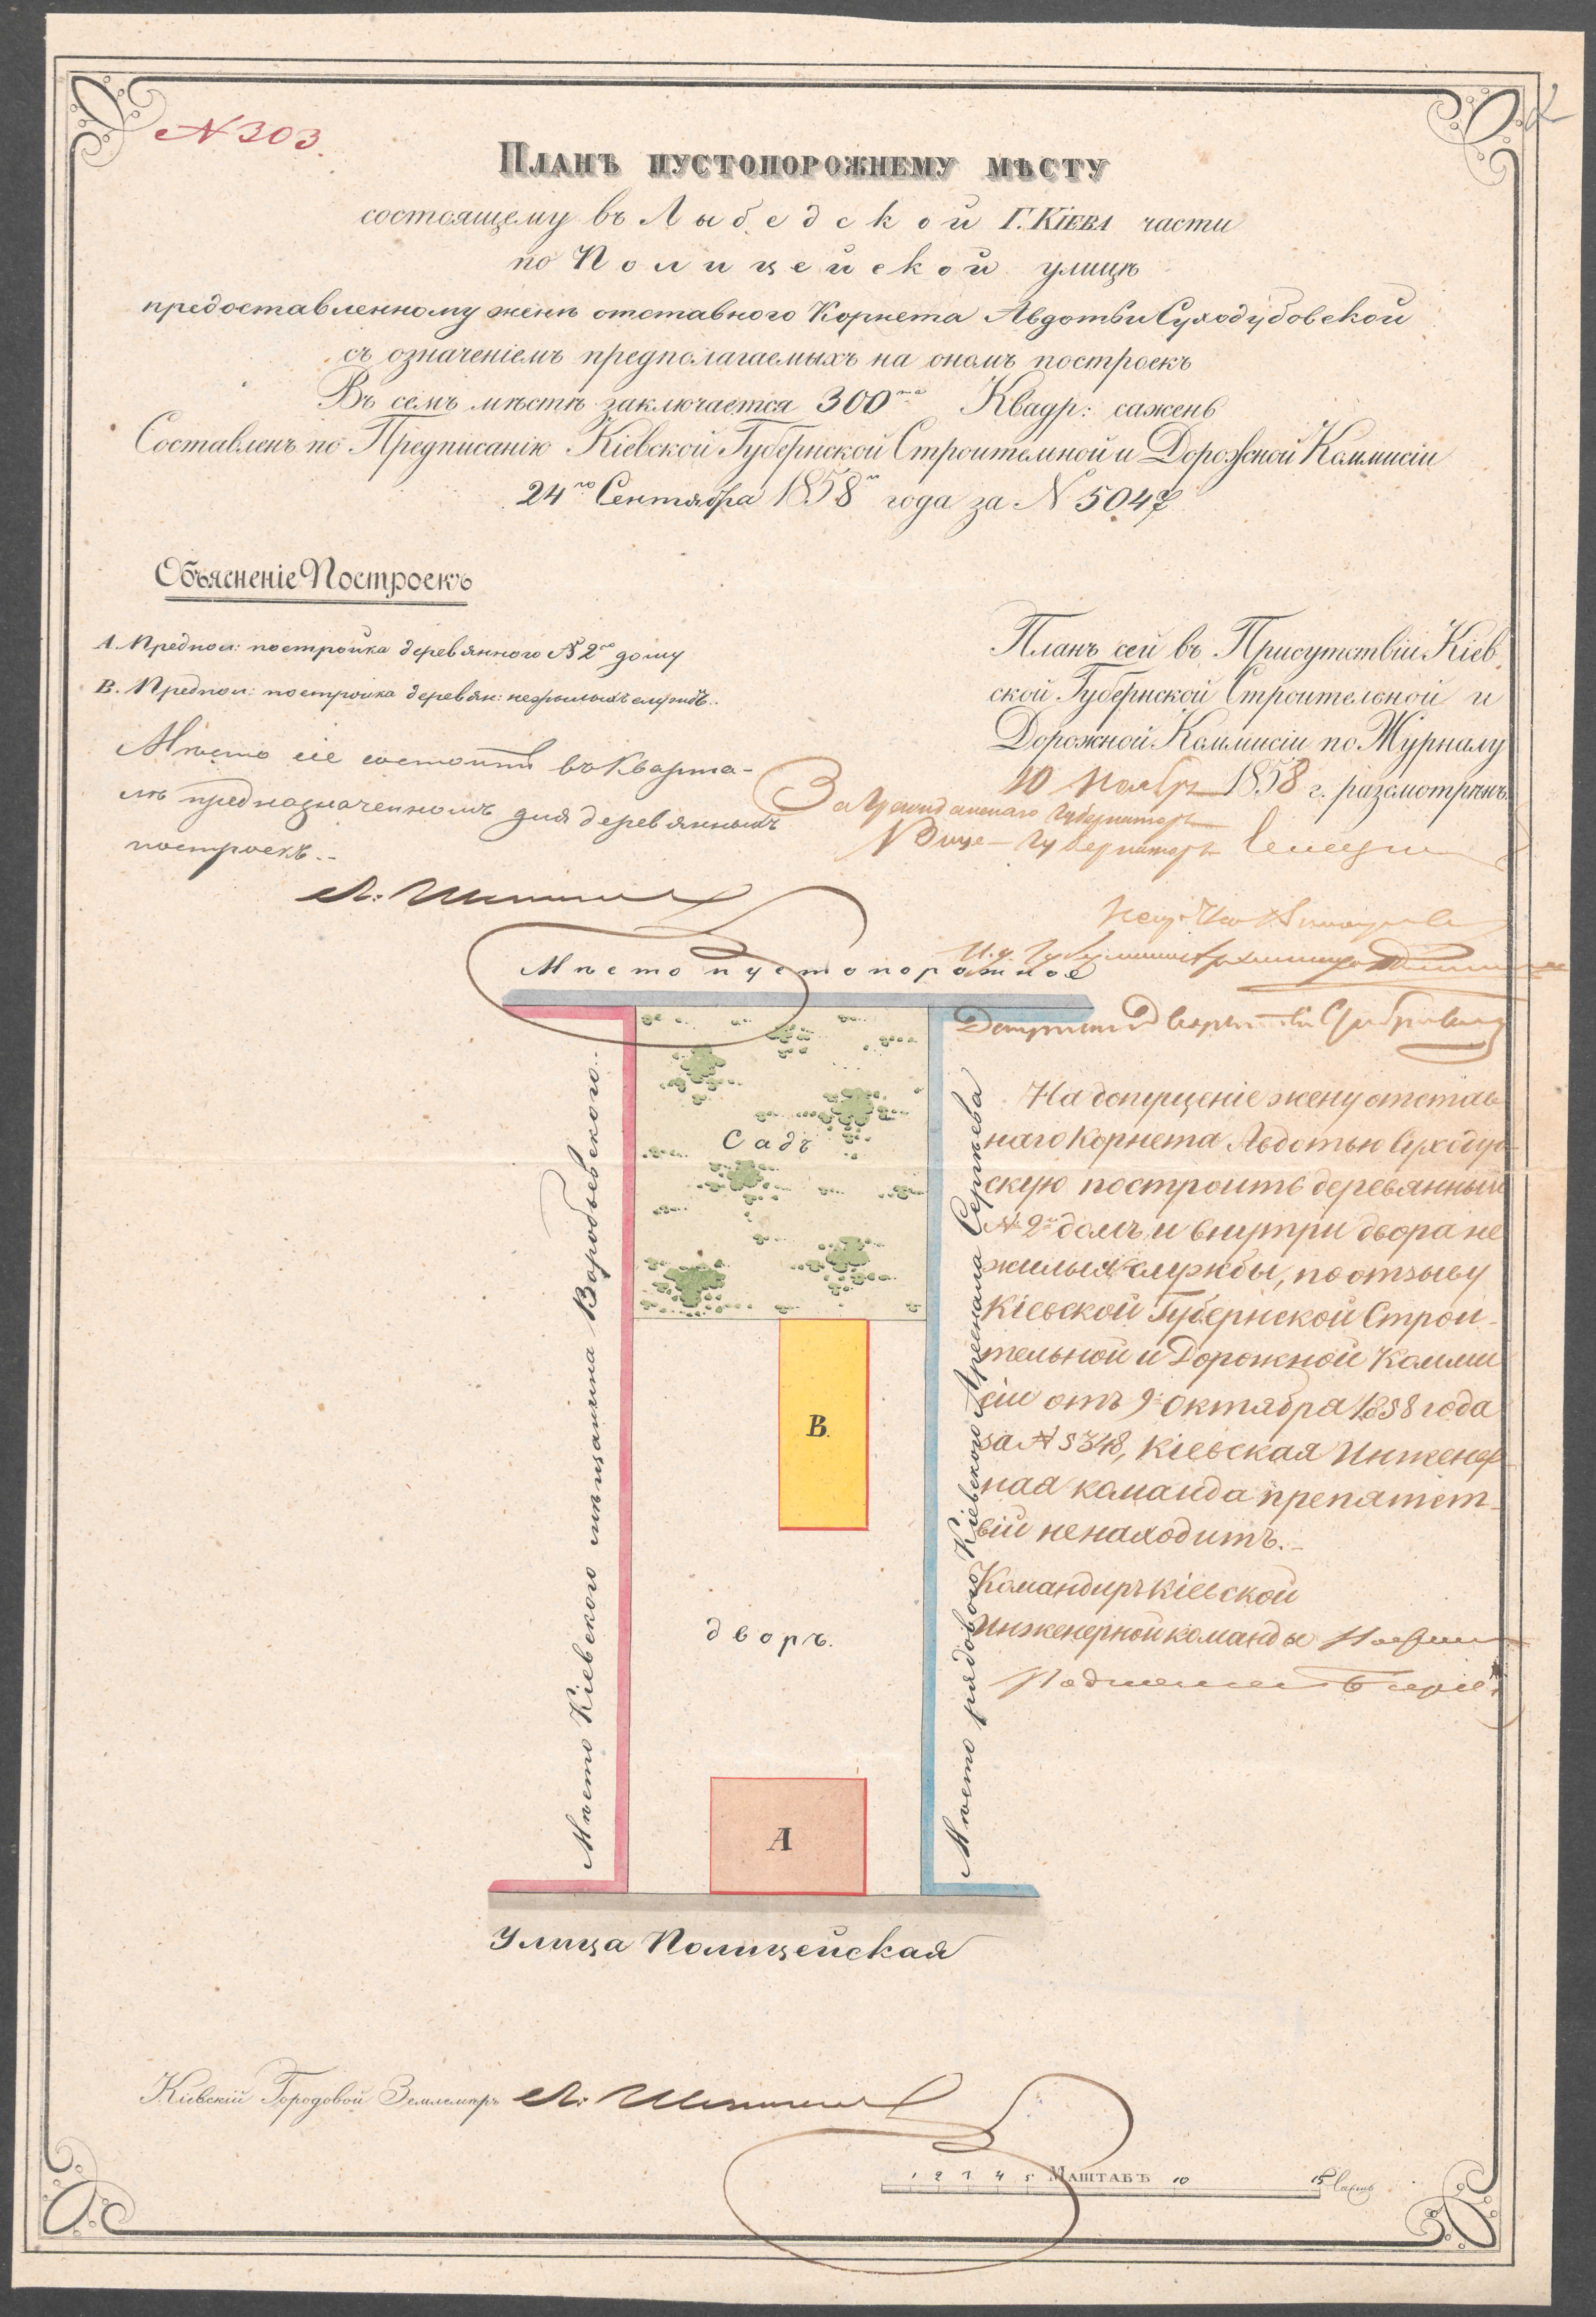 N 303.
Планъ пустопорожнему мѣсту
состоящему въ Лыбедской Г. Кіева части
по Полицейской улицѣ
предоставленному женѣ отставного Корнета Авдотьи Суходубовской
съ означеніемъ предполагаемыхъ на ономъ построекъ
Въ семъ мѣстѣ заключается 300 та Квадр: сажень
Составленъ по Предписанію Кіевской Губернской Строительной и Дорожной Коммисіи
24го Сентября 1858го года за N 5047
Объясненіе Построекъ
А. Предпол: постройка деревянного N 2го дому
В. Предпол: постройка деревян: нежилыхъ службъ.
Мѣсто сіе состоитъ въ Кварта-
лѣ предназначенномъ для деревянныхъ
построекъ.-
Планъ сей въ Присутствіи Кіев
ской Губернской Строительной и
Дорожной Коммисіи по Журналу
10 Ноября 1858 г. разсмотрѣнъ
За Гражданскаго Губернатора
Вице-Губернаторъ
Мѣсто пустопорожнее
На допущеніе жену отстав
наго Корнета Авдотью Суходуб-
скую построить деревянный
N 2й домъ и внутри двора не
жилыя службы, по отзыву
Кіевской Губернской Строи-
тельной и Дорожной Комми
сіи отъ 9 Октября 1858 года
за N 5348, Кіевская Инженер
ная команда препятст-
вій ненаходитъ.-
Командиръ Кіевской
Инженерной команды
Садъ
В.
дворъ.
А
Мѣсто Кіевского мѣщанина Воробьевского.
Мѣсто рядового Кіевского Арсенала Сергѣева
Улица Полицейская
Кіевскій Городовой Землемѣръ
1 2 3 4 5 Маштабъ 10 15 Саженъ